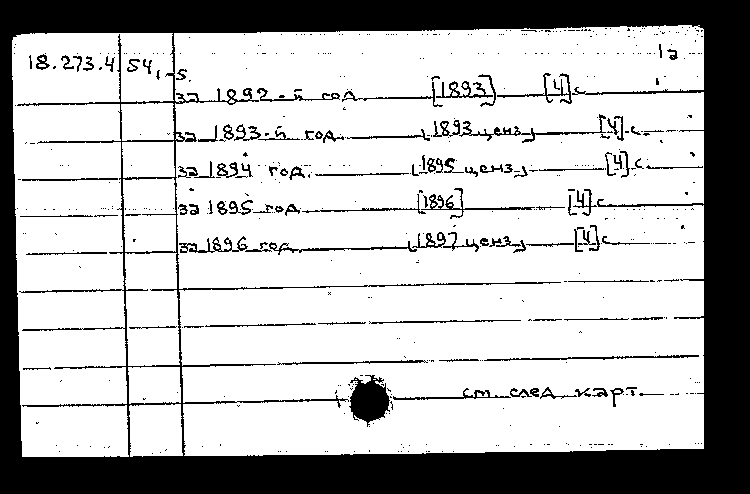 1а
18.273.4 54,-5.
за 1892-й год. [1893] [4]с.
за 1893-й год. [1893 ценз.] [4]с.
за 1894 год. [1895 ценз.] [4]с.
за 1895 год [1896] [4]с.
за 1896 год. [1897 ценз.] [4]с.
см. след карт.